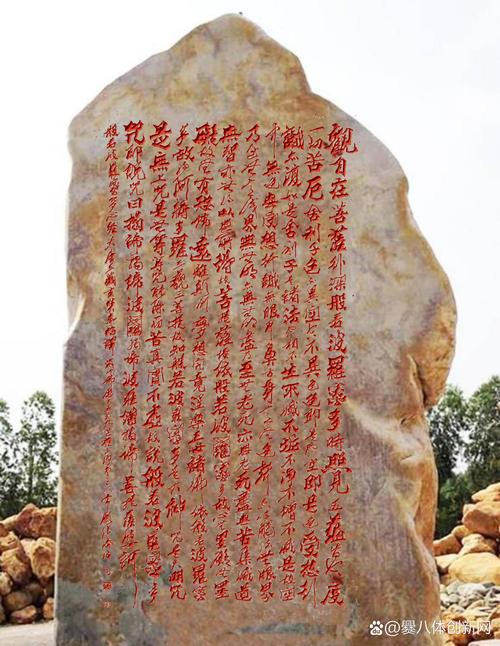 觀自在菩薩行深般若波羅蜜多時照見五蘊皆空度
一切苦厄舍利子色不異空空不異色色即是空空即是色受想行
識亦復如是舍利子是諸法空相不生不滅不垢不淨不增不減是故空
中無色無受想行識無眼耳鼻舌身意無色聲香味觸法無眼界
乃至無意識界無無明亦無無明盡乃至無老死亦無老死盡無苦集滅道
無智亦無得以無所得故菩提薩埵依般若波羅蜜多故心無罣
礙無罣礙故無有恐怖遠離顛倒夢想究竟涅槃三世諸佛依般若波羅蜜
多故得阿耨多羅三藐三菩提故知般若波羅蜜多是大神咒是大明咒
是無上咒是無等等咒能除一切苦真實不虛故說般若波羅蜜多
咒即說咒曰揭諦揭諦波羅揭諦波羅僧揭諦菩提薩婆訶
般若波羅蜜多心經大唐三藏玄奘奉詔譯
爨八体创新网